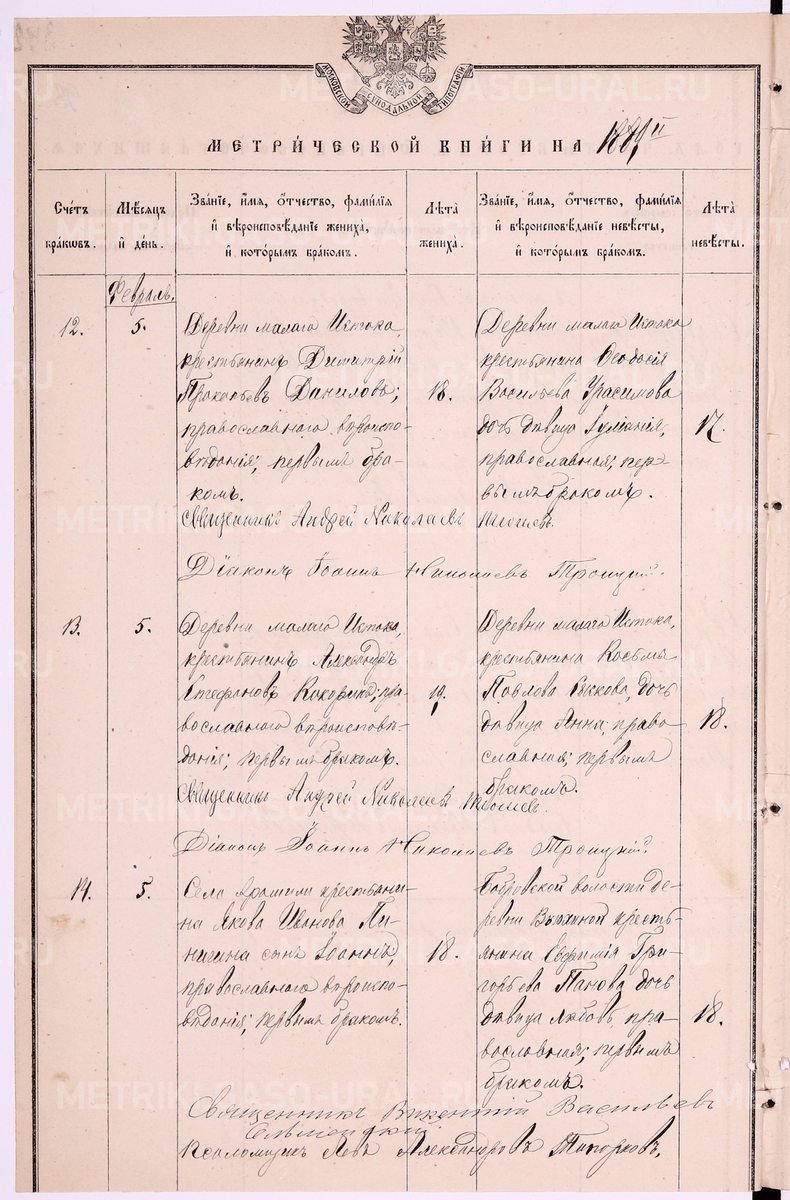 МОСКОВСКОЙ СѴНОДАЛЬНОЙ ТИПОГРАФІИ
МЕТРИ́ЧЕСКОЙ КНИ́ГИ НА
Сче́тъ бра́кѡвъ.
Мѣ́сяцъ и҆ де́нь.
Зва́ніе, и҆́мя, ѻ҆́тчество, фами́лія и҆ вѣроисповѣ́даніе жениха̀, и҆ кото́рымъ бра́комъ.
Лѣ́та жениха̀.
Зва́ніе, и҆́мя, ѻ҆́тчество, фами́лія и҆ вѣроисповѣ́даніе невѣ́сты, и҆ кото́рымъ бра́комъ.
Лѣ́та невѣ́сты.
Февраль.
12.
5.
Деревни малаго Истока,
крестьянинъ Димитрій
Прокопьевъ Даниловъ;
православнаго вѣроиспо-
вѣданія; первымъ бра-
комъ.
18.
Деревни малаго Истока
крестьянина Ѳеодосія
Васильева
дочь дѣвица
православная; пер-
вымъ бракомъ.
17.
Священникъ Андрей Николаевъ
Діаконъ Іоаннъ Николаевъ Троицкій.
13.
5.
Деревни малаго Истока,
крестьянинъ Александръ
Стефановъ Кокоринъ; пра-
вославнаго вѣроисповѣ-
данія; первымъ бракомъ.
19.
Деревни малаго Истока,
крестьянина Косьмы
Павлова дочь
дѣвица Анна; право-
славная; первымъ
бракомъ.
18.
Священникъ Андрей Николаевъ
Діаконъ Іоаннъ Николаевъ Троицкій.
14.
5.
Села Арамили крестьяни-
на Якова Иванова Пи-
нигина сынъ Іоаннъ,
православнаго вѣроиспо-
вѣданія; первымъ бракомъ.
18.
Бобровской волости де-
ревни крестьянина
Евфимія Гри-
горьева Панова дочь
дѣвица Любовь пра-
вославная; первымъ
бракомъ.
18.
Священникъ Викентій Васильевъ
Псаломщикъ Левъ Александровъ Топорковъ.
METRIKI.GASO-URAL.RU